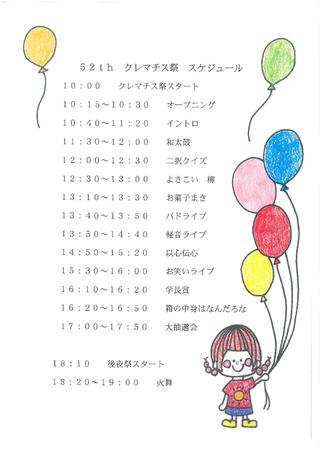 52th クレマチス祭 スケジュール
10:00 クレマチス祭スタート
10:15~10:30 オープニング
10:40~11:20 イントロ
11:30~12:00 和太鼓
12:00~12:30 二択クイズ
12:30~13:00 よさこい 柳
13:10~13:30 お菓子まき
13:40~13:50 バドライブ
13:50~14:40 軽音ライブ
14:50~15:20 以心伝心
15:30~16:00 お笑いライブ
16:10~16:20 学長賞
16:20~16:50 箱の中身はなんだろな
17:00~17:50 大抽選会
18:10 後夜祭スタート
18:20~19:00 火舞